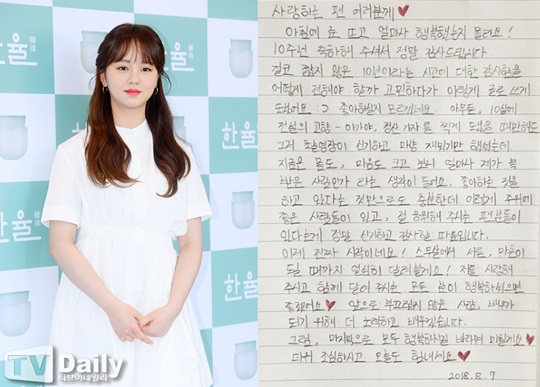 한율
한율
TV Daily
티브이데일리
사랑하는 팬 여러분께♥
아침에 눈 뜨고 얼마나 행복했는지 몰라요!
10주년 축하해 주셔서 정말 감사드립니다.
결코 쉽지 않은 10년이라는 시간에 대한 감사함을
어떻게 전해야 할까 고민하다가 이렇게 글로 쓰게
됐어요 :) 좋아하실지 모르겠네요 아무튼, 10살에
전설의 고향 - 아가야, 청산 가자를 찍게 됐을 때만해도
그저 촬영장이 신기하고 마냥 재밌기만 했었는데
지금은 몸도, 마음도 크고 보니 얼마나 제가 복
받은 사람인가 라는 생각이 들어요. 좋아하는 것을
하고 있다는 것만으로도 충분한데 이렇게 주위에
좋은 사람들이 있고, 절 응원해 주시는 팬분들이
있다는게 정말 신기하고 감사할 따름입니다.
이제 진짜 시작이네요! 스무살에서 서른, 마흔이
될 때까지 열심히 달려할게요! 저를 사랑해
주시고 함께 달려 주시는 모든 분이 행복하셨으면
좋겠어요♥ 앞으로 부끄럽지 않은 사람, 배우가
되기 위해 더 노력하고 배우겠습니다.
그럼, 마지막으로 모두 행복하시길 바라며 이럴게요♥
더위 조심하시고 오늘도 힘내세요♥
2018. 8. 7